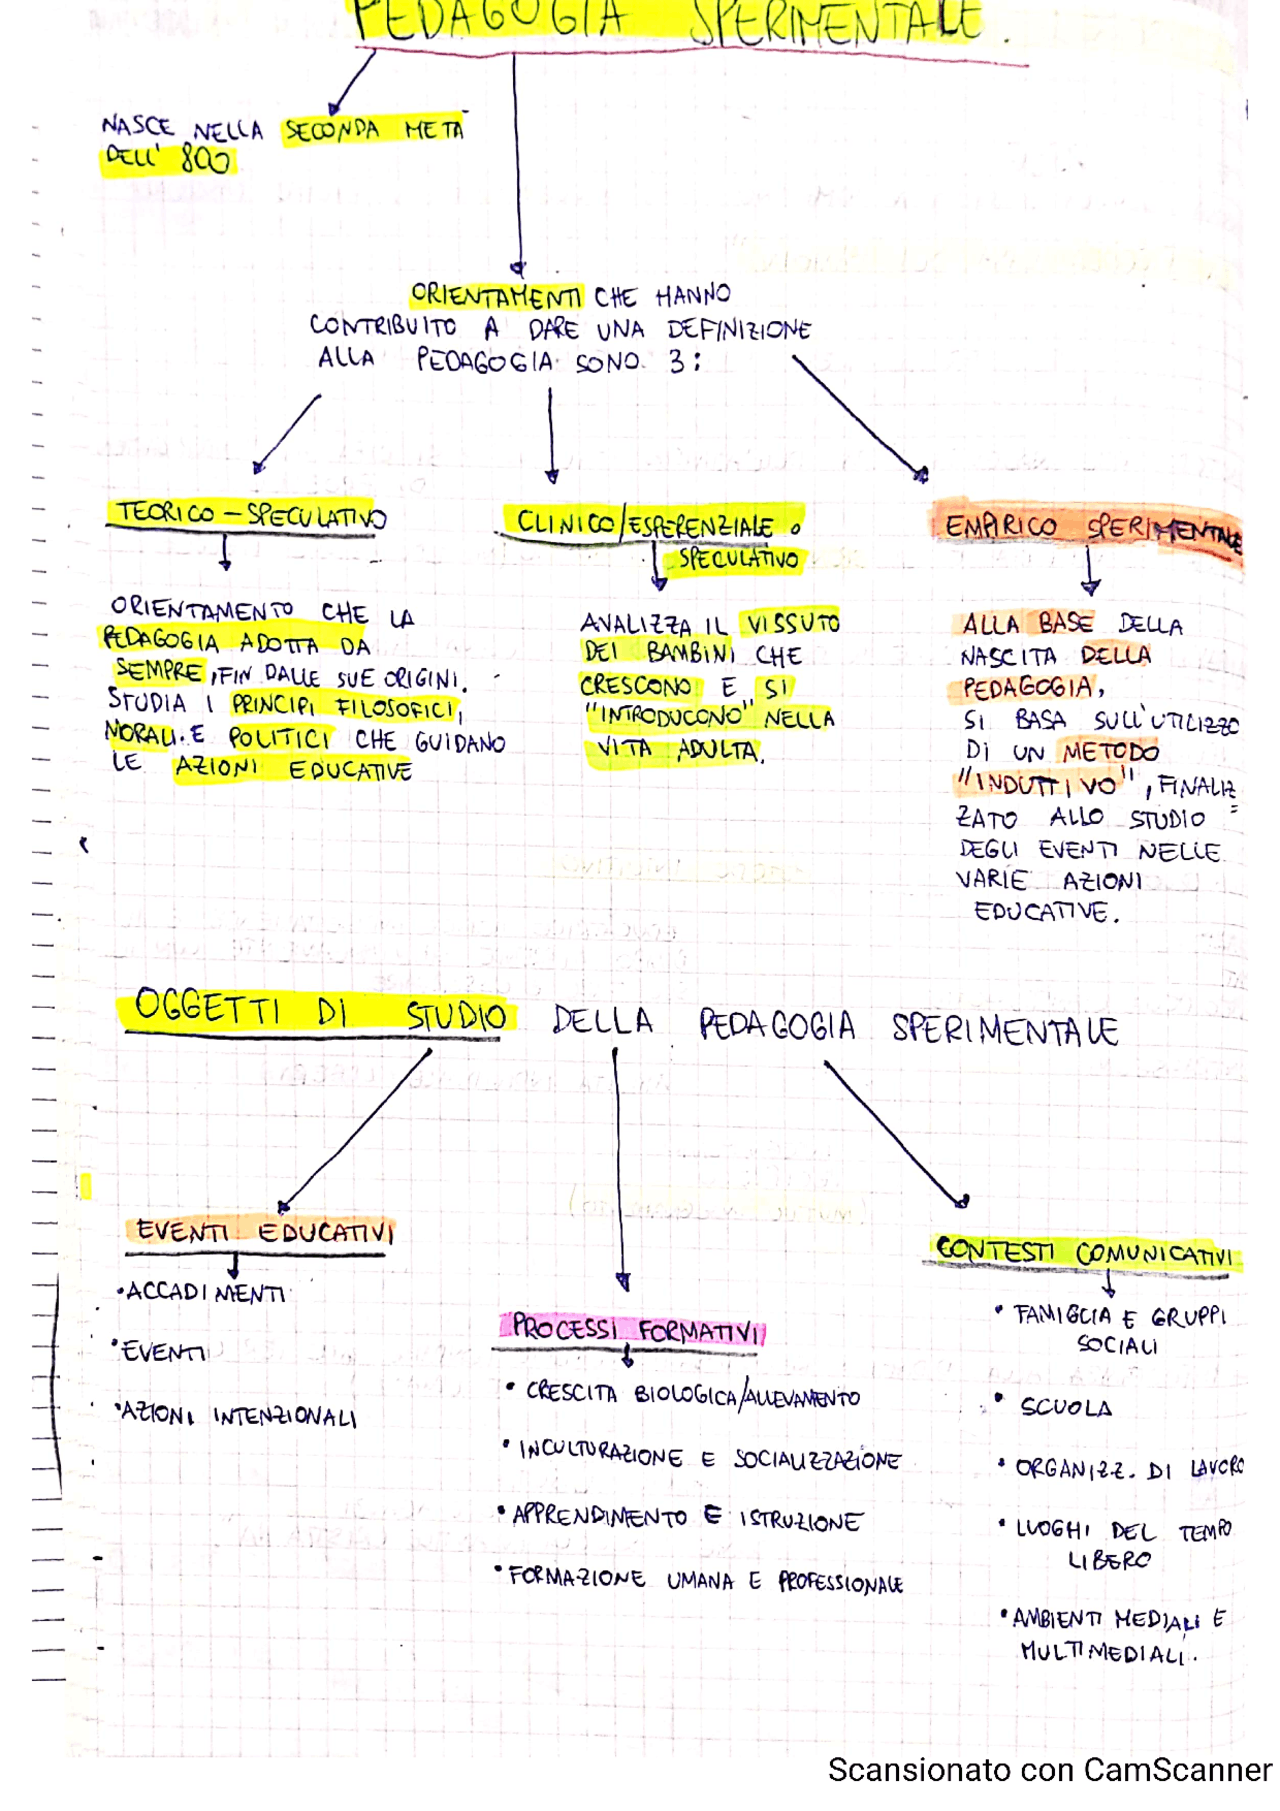 PEDAGOGIA SPERIMENTALE.
NASCE NELLA SECONDA METÀ
DELL' 800
ORIENTAMENTI CHE HANNO
CONTRIBUITO A DARE UNA DEFINIZIONE
ALLA PEDAGOGIA SONO 3:
TEORICO - SPECULATIVO
ORIENTAMENTO CHE LA
PEDAGOGIA ADOTTA DA
SEMPRE, FIN DALLE SUE ORIGINI.
STUDIA I PRINCIPI FILOSOFICI,
MORALI E POLITICI CHE GUIDANO
LE AZIONI EDUCATIVE
CLINICO/ESPERENZIALE O
SPECULATIVO
ANALIZZA IL VISSUTO
DEI BAMBINI CHE
CRESCONO E SI
"INTRODUCONO" NELLA
VITA ADULTA.
EMPIRICO SPERIMENTALE
ALLA BASE DELLA
NASCITA DELLA
PEDAGOGIA,
SI BASA SULL'UTILIZZO
DI UN METODO
"INDUTTIVO", FINALIZ
ZATO ALLO STUDIO
DEGLI EVENTI NELLE
VARIE AZIONI
EDUCATIVE.
OGGETTI DI STUDIO DELLA PEDAGOGIA SPERIMENTALE
EVENTI EDUCATIVI
• ACCADIMENTI
• EVENTI
• AZIONI INTENZIONALI
PROCESSI FORMATIVI
• CRESCITA BIOLOGICA/ALLEVAMENTO
• INCULTURAZIONE E SOCIALIZZAZIONE
• APPRENDIMENTO E ISTRUZIONE
• FORMAZIONE UMANA E PROFESSIONALE
CONTESTI COMUNICATIVI
• FAMIGLIA E GRUPPI
SOCIALI
• SCUOLA
• ORGANIZZ. DI LAVORO
• LUOGHI DEL TEMPO
LIBERO
• AMBIENTI MEDIALI E
MULTIMEDIALI.
Scansionato con CamScanner